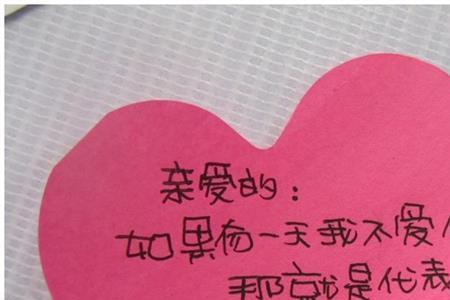 亲爱的：
如果有一天我不爱
那就是代表